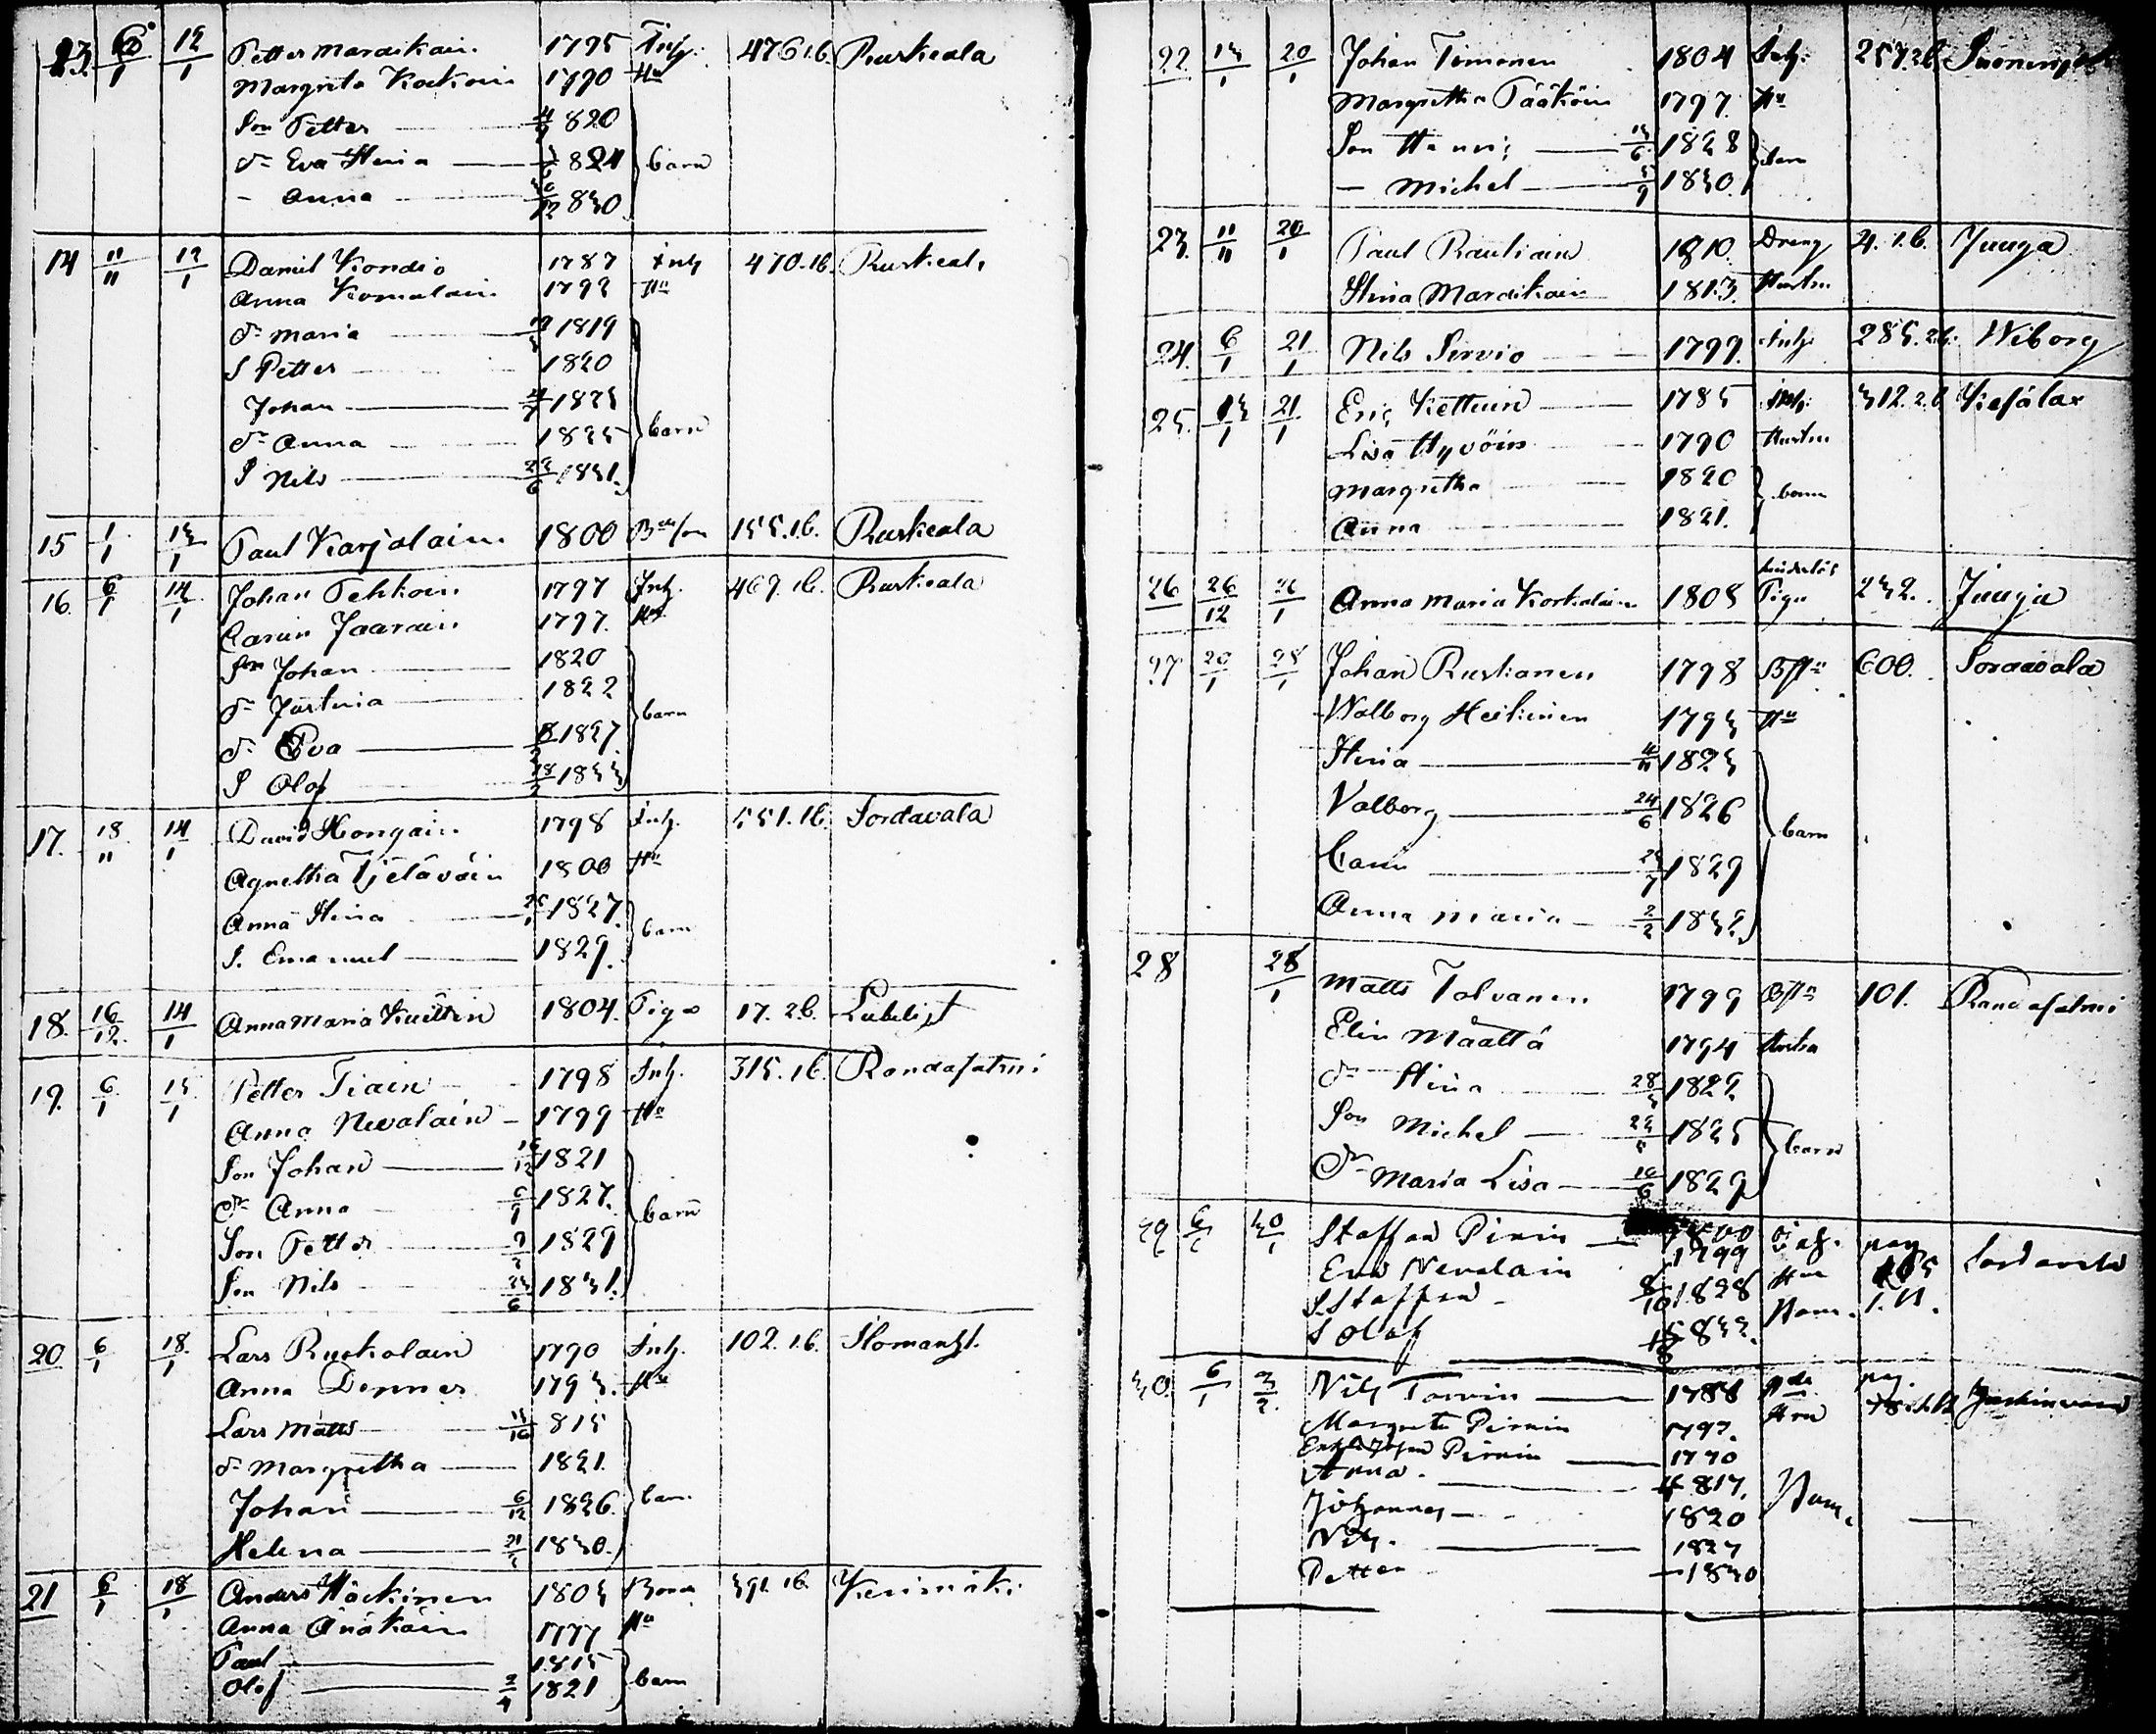 13. 6/1 12/1 Petter Maraikain 1795 Inh. 476.1b. Ruskeala
Margreta Kockoin 1790 Hu
Son Petter 820
dr Eva Stina 824 barn
- Anna 30/12 830
14 11/11 12/1 Daniel Kondio 1787 Inh 470.1b. Ruskeala
Anna Komulain 1792 Hu
dr Maria 1819
S Petter 1820
Johan 1823
dr Anna 1825 barn
S Nils 1831.
15 1/1 13/1 Paul Karjalain 1800 155.1b. Ruskeala
16. 6/1 14/1 Johan Pehkoin 1797 Inh. 469.1b. Ruskeala
Carin Jaarain 1797. Hu
Son Johan 1820
dr Justina 1822
dr Eva 1827 barn
S Olof 1833
17. 18/11 14/1 David Hongain 1798 Inh. 551.1b. Sordavala
Agnetha Tjelävöin 1800 Hu
Anna Stina 1827.
S. Emanuel 1829. barn
18. 16/12. 14/1 Anna Maria Kuittin 1804. Piga 17. 2b. Libelits
19. 6/1 15/1 Petter Tiain 1798 Inh. 315.1b. Randasalmi
Anna Nevalain 1799 Hu
Son Johan 1821
dr Anna 1827. barn
Son Petter 1829
Son Nils 1831.
20 6/1 18/1 Lars Ruokolain 1790 Inh. 102.1b. Ilomants.
Anna Denner 1793. Hu
Lars Matts 815
dr Margretha 1821.
Johan 6/12 1826. barn
Helena 1830.
21 6/1 18/1 Anders Häckinen 1803 Bond 391.1b. Kerimäki
Anna 1777 Hu
Paul 1815
Olof 2/4 1821 barn
22. 13/1 20/1 Johan Timonen 1804 Inh. 257.2b.
Margretha Pääköin 1797. Hu
Son Henric 13/6 1828 barn
- Michel 1830.
23. 11/11 20/1 Paul Rautiain 1810. Dreng 4. 1b. Juuga
Stina Maraikain 1813. Hustru
24. 6/1 21/1 Nils Servio 1799. Inh. 285.2b. Wiborg
25. 13/1 21/1 Eric Kettuin 1785 Inh. 312.2b. Kesälax
Lisa Hyvöin 1790 Hustru
Margretha 1820 barn
Anna 1821.
26 26/12 26/1 Anna Maria Korkalain 1805 Piga 232. Juuga
27 20/1 28/1 Johan Ruskanen 1798 600. Sordavala
Walborg Heikinen 1793 Hu
Stina 4/11 1823
Valborg 24/6 1826
Carin 1829 barn
Anna Maria 2/2 1832.
28 28/1 Matts Tolvanen 1799 101. Randasalmi
Elin Määttä 1794 Hustru
dr Stina 1822.
Son Michel 1825 barn
dr Maria Lisa 1829
29 30/1 Staffan Pirin 1800
Eva Nevalain 1799 Hu
S. Staffan 8/10 1828 Barn. 1.b.
S Olof 832.
30. 6/1 3/2. Nils Torvin 1788 pag.
Margreta Pirnin 1792. Hru
Pirnin 1770
Anna. 817.
Johannes 1820 Barn.
Nils. 1827
Petter 1830